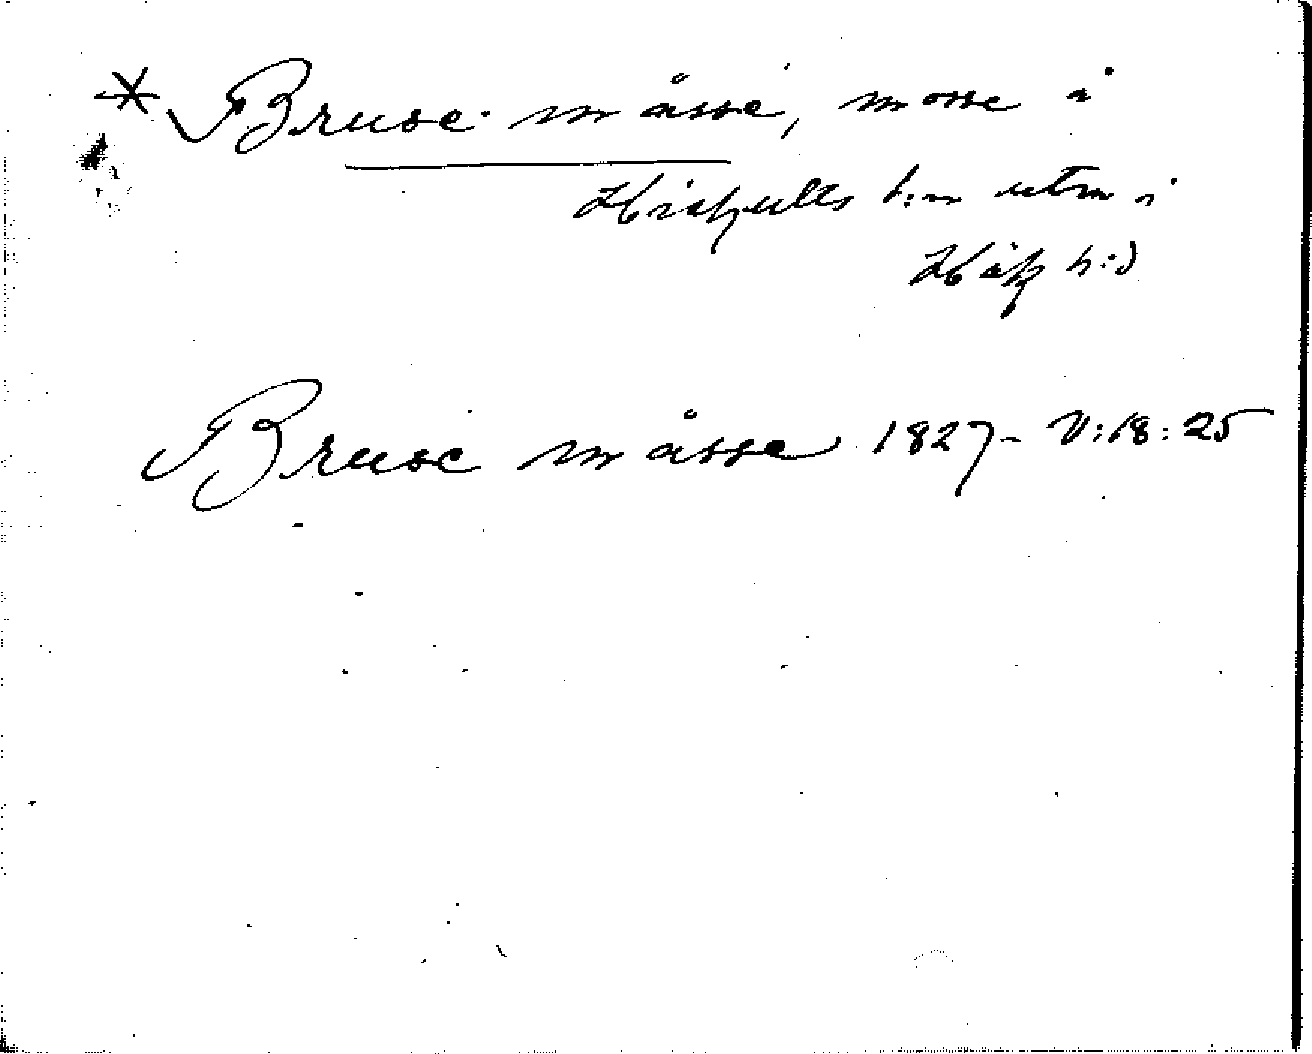 * Bruse måsse, mosse i
Hishults s:n utm i
Höks h:d
Bruse måsse 1827 - V:18:25